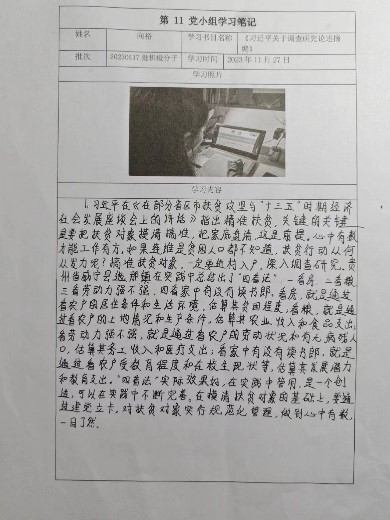 第 11 党小组学习笔记
姓名 向榕 学习书目名称 《习近平关于调查研究论述摘编》
批次 20230417批积极分子 学习时间 2023年11月27日
学习照片
学习内容
1.习近平在《在部分省区市扶贫攻坚与“十三五”时期经济
社会发展座谈会上的讲话》指出精准扶贫,关键的关键
是要把扶贫对象摸清搞准,把家底盘清,这是前提。心中有数
才能工作有方。如果连谁是贫困人口都不知道,扶贫行动从何
处发力呢?搞准扶贫对象,一定要进村入户,深入调查研究。贵
州省威宁县迤那镇在实践中总结出了“四看法”:一看房,二看粮
三看劳动力强不强,四看家中有没有读书郎。看房,就是通过
看农户的居住条件和生活环境,估算其贫困程度;看粮,就是通
过看农户的土地情况和生产条件,估算其农业收入和食品支出;
看劳动力强不强,就是通过看农户的劳动状况和有无病残人
口,估算其务工收入和医疗支出;看家中有没有读书郎,就是
通过看农户受教育程度和在校生现状等,估算其发展潜力
和教育支出。“四看法”实际效果好,在实践中管用,是一个创
造,可以在实践中不断完善。在摸清扶贫对象的基础上,要通
过建档立卡,对扶贫对象实行规范化管理,做到心中有数,
一目了然。